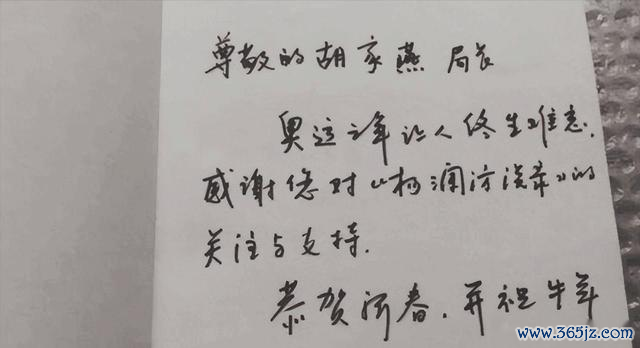 尊敬的胡家燕局长
奥运之年让人终生难忘,
感谢您对《杨澜访谈录》的
关注与支持.
恭贺新春.并祝牛年
www.365jz.com